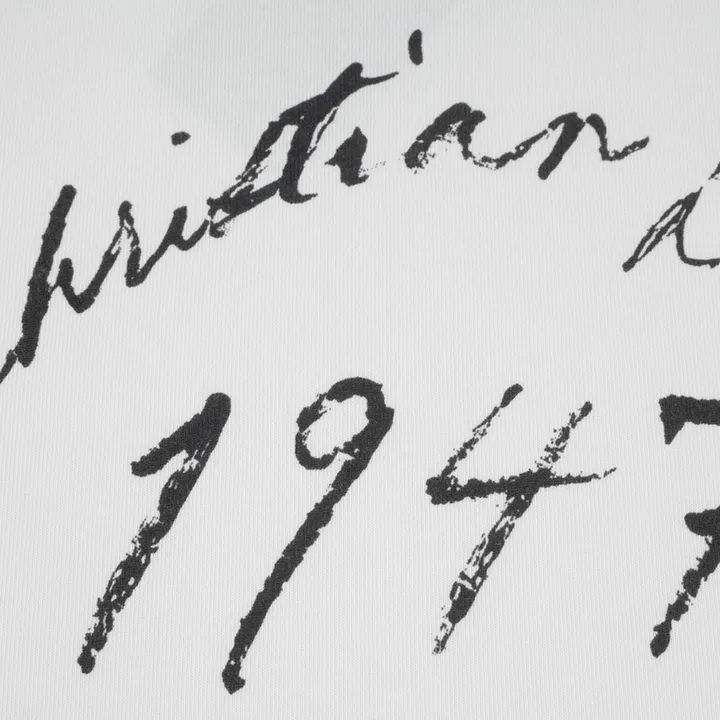 hristian
1947